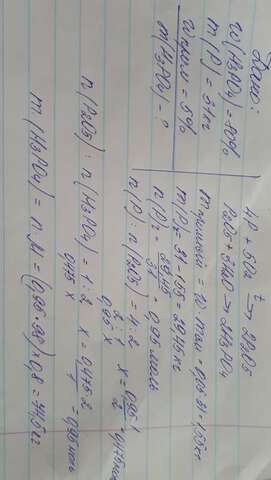 Дано:
w(H3PO4) = 80%
m(P) = 31г
wприм = 5%
m(H3PO4) - ?
4P + 5O2 t→ 2P2O5
P2O5 + 3H2O → 2H3PO4
m = w · m = 0,05 · 31 = 1,55г
m(P) = 31 - 1,55 = 29,45г
n(P) = 29,45 / 31 = 0,95 моль
n(P) : n(P2O5) = 4 : 2
2 : 1
0,95 x
x = 0,95 · 1 / 2 = 0,475 моль
n(P2O5) : n(H3PO4) = 1 : 2
0,475 x
x = 0,475 · 2 / 1 = 0,95 моль
m(H3PO4) = n · M = (0,95 · 98) × 0,8 =